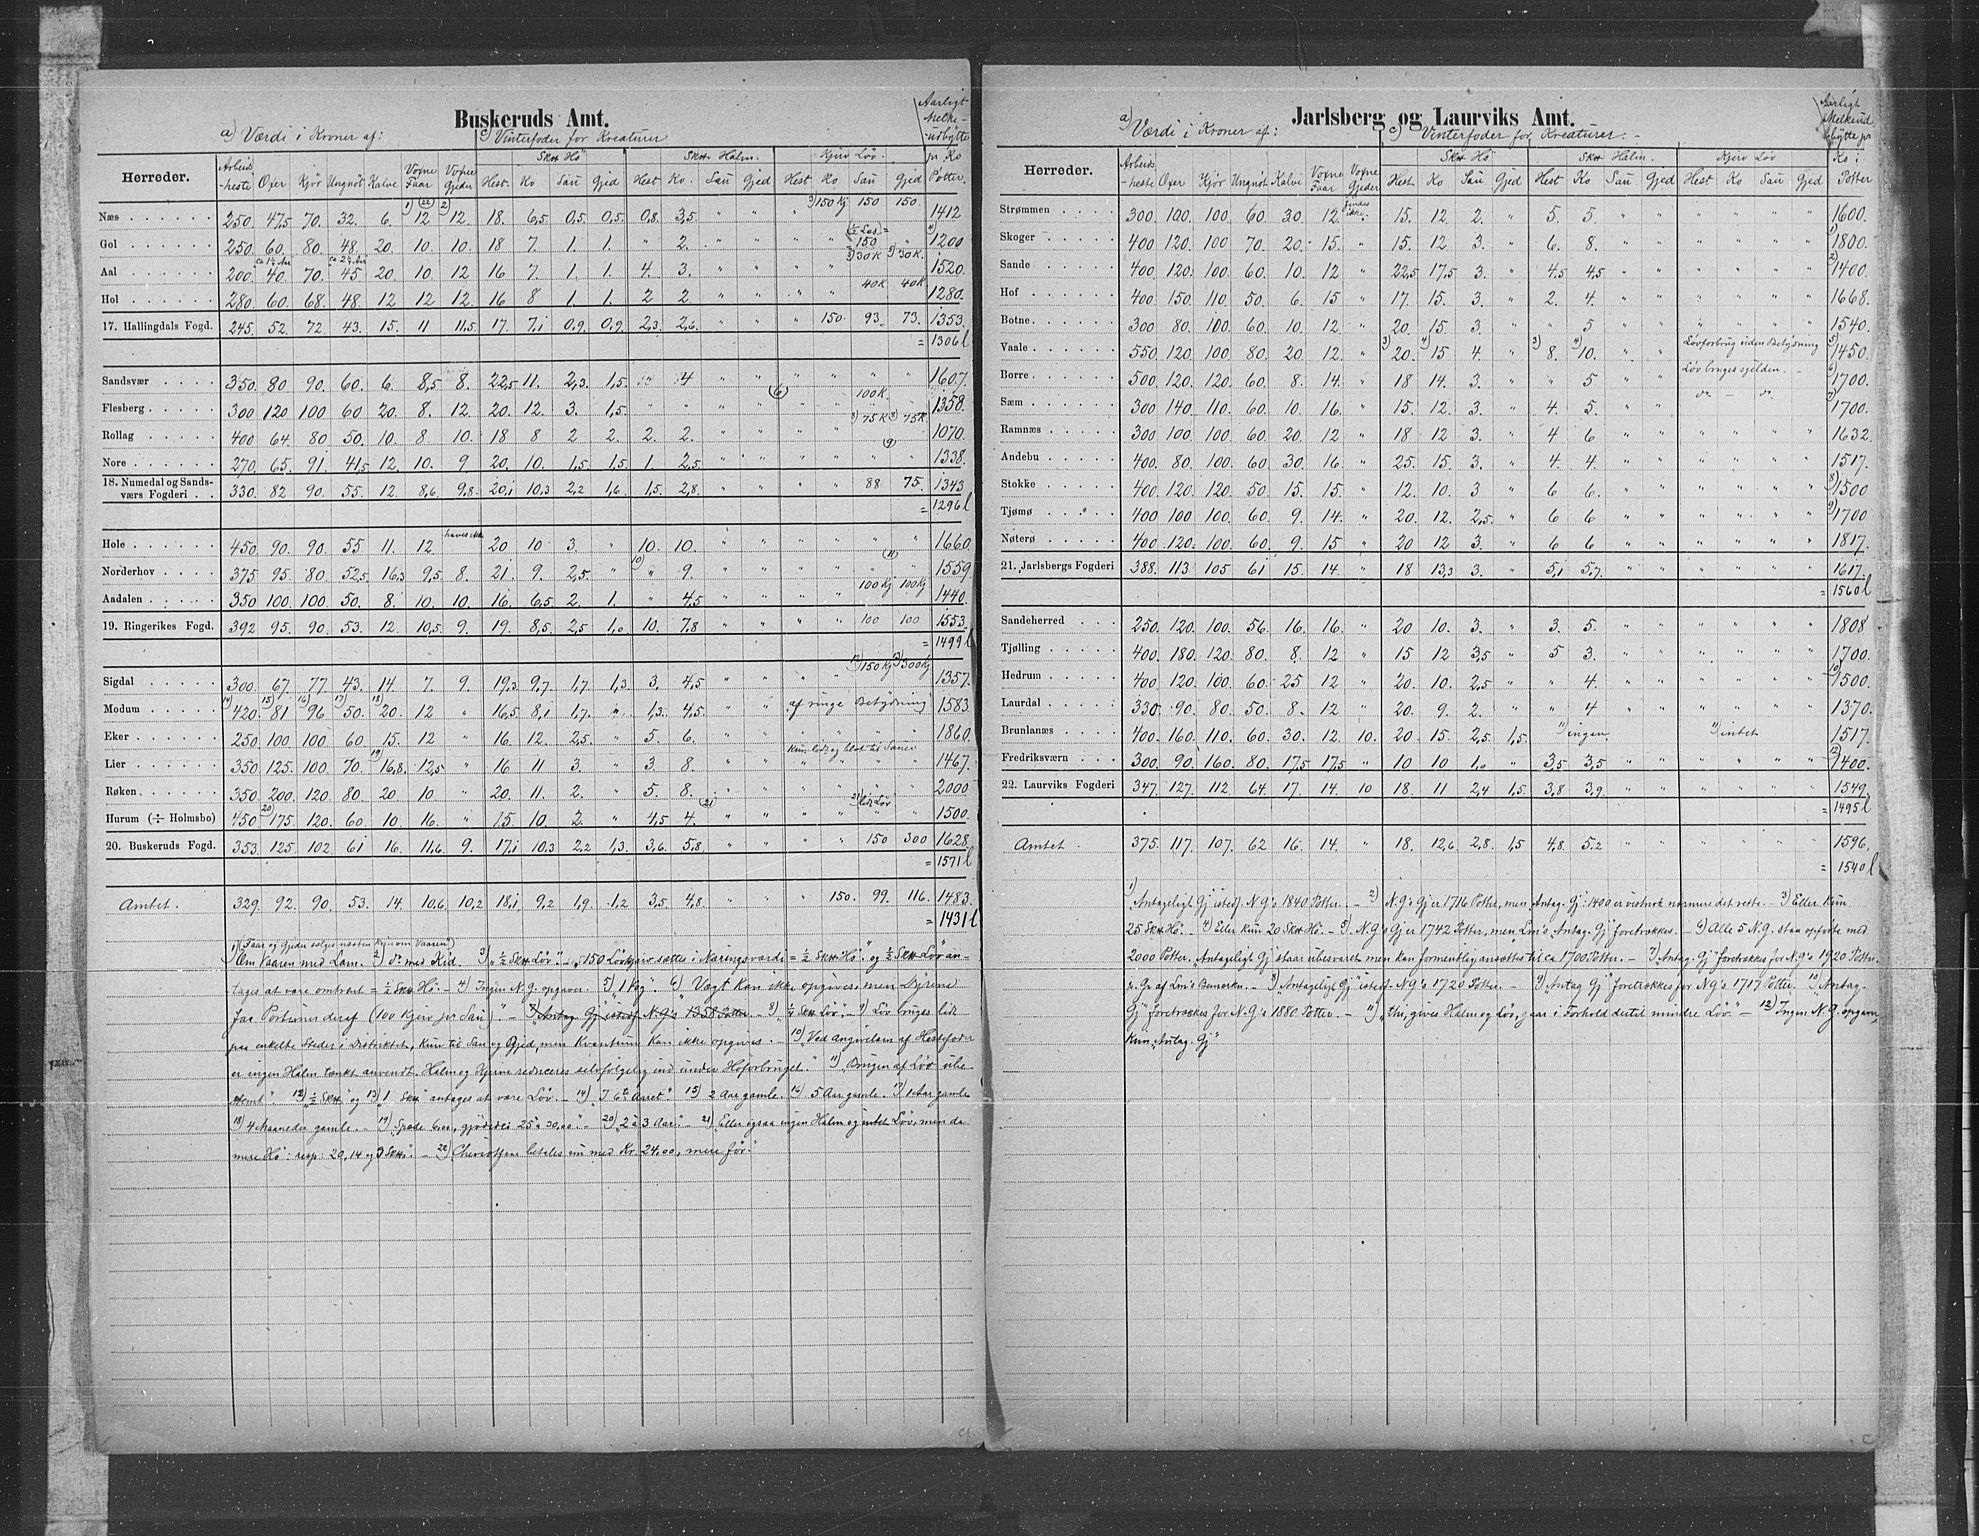 Buskeruds Amt.
a) Værdi i Kroner af: c) Vinterfoder for Kreaturer Aarligt Melke-udbytte pr. Ko Potter.
Sk℔ Hö Sk℔ Halm. Kjerv Löv.
Herreder. Arbeids-heste Oxer Kjör Ungnöt Kalve Voxne Faar Voxne Gjeder Hest. Ko Sau Gjed Hest Ko. Sau Gjed Hest Ko Sau Gjed
Næs 250. 47,5 70. 32. 6. 1) 12 (22) 2) 12. 18. 6,5 0,5. 0,5. 0,8. 3,5 " " " 3) 150 Kj 150 150 1412
Gol 250. 60. 80. 48. 20. 10. 10. 18 7. 1. 1. " 2. " " " " (½ Læs.) = 150 " 4) 1200
Aal 200. ca 1½ Aar 40. 70. ca 2½ Aar 45 20. 10. 12 16 7. 1. 1. 4. 3. " " " " 5) 30 K 5) 30 K. 1520.
Hol 280. 60. 68. 48. 12 12 12. 16 8 1. 1. 2 2. " " " " 40 K 40 K 1280.
17. Hallingdals Fogd. 245. 52. 72 43. 15. 11 11,5 17. 7,1 0,9. 0,9. 2,3. 2,6. " " " 150. 93. 73. 1353.
= 1306 l
Sandsvær 350. 80 90. 60. 6. 8,5 8. 22,5 11. 2,3. 1,5. " 4 " " " " " " 1607.
Flesberg 300 120 100 60 20. 8. 12. 20. 12. 3. 1,5. " " " " (6) " " 100 K. " 1358.
Rollag 400 64. 80 50. 10. 8. 10. 18 8 2 2. 2. 2. " " " " 8) 75 K 8) 75 K. 1070.
Nore 270. 65. 91. 41,5 12. 10. 9 20. 10. 1,5 1,5 1. 2,5 " " " " (9) 1338.
18. Numedal og Sandsværs Fogderi 330. 82 90. 55. 12. 8,6 9,8. 20,1 10,3 2,2 1,6 1,5. 2,8. " " " " 88 75. 1343
= 1296 l
Hole 450. 90. 90. 55 11. 12. haves ikke 20 10 3. " 10. 10. " " " " " " 1660.
Norderhov 375 95. 80 52,5 16,3 9,5 8. 21. 9. 2,5. " 10) " 9. " " " " (11) " " 1559.
Aadalen 350 100. 100. 50. 8. 10. 10. 16. 6,5 2. 1. " 4,5 " " " " 100 Kj 100 Kj. 1440.
19. Ringerikes Fogd. 392 95. 90. 53. 12. 10,5 9. 19. 8,5 2,5 1,0 10. 7,8 " " " " 100 100 1553.
= 1499 l
Sigdal 300. 67. 77. 43. 14. 7. 9. 19,3 9,7 1,7 1,3 3. 4,5 " " " " 12) 150 Kj 13) 300 Kj 1357.
Modum 14) 420. 15) 81 16) 96 17) 50. 18) 20. 12 " 16,5 8,1 1,7. " 1,3. 4,5. " " af ringe Betydning 1583
Eker 250 100 100 60 15. 12 " 16. 12. 2,5. " 5. 6. " " " " " " 1860.
Lier 350 125. 100. 70. 19) 16,8. 12,5 " 16 11 3. " 3. 8. " " Kun lidt og blot til Sauer 1467.
Røken 350. 200. 120. 80. 20 10 " 20. 11. 2. " 5. 8. " " " " " " 2000
Hurum (÷ Holmsbo) 450 20) 175. 120. 60. 10. 16. " 15. 10. 2. " 4,5 4. (21) " " " " 21) lidt Löv " 1500.
20. Buskeruds Fogd. 353. 125. 102. 61 16. 11,6 9. 17,1 10,3 2,2 1,3. 3,6. 5,8. " " " " 150 300 1628.
= 1571 l
Amtet. 329. 92. 90. 53. 14. 10,6 10,2 18,1 9,2 1,9. 1,2 3,5 4,8. " " " 150. 99. 116. 1483.
= 1431 l
1) (Faar og Gjeder sælges næsten kun om Vaaren)
Om Vaaren med Lam. 2) do med Kid. 3) "½ Sk℔ Löv". - "150 Lövkjerv sættes i Næringsværdi = ½ Sk℔ Hö" og ½ Sk℔ Löv an-
tages at være omtrent = ½ Sk℔ Hö. - 4) Ingen N.G. opgaver. 5) "1 Læg". 6) "Vægt kan ikke opgives, men Dyrene
faa Portioner deraf (100 Kjerv for Sau)". - 7) "Antag. Gj" istedf. N.G's 1358 Potter - 8) "¼ Sk℔ Löv". - 9) Löv bruges lidt
paa enkelte Steder i Distriktet, kun til Sau og Gjed, men Kvantum kan ikke opgives. - 10) "Ved Angivelsen af Hestefoder
er ingen Halm tænkt anvendt. Halm og Kjerne reduceres selvfölgelig ind under Höforbruget". 11) "Brugen af Löv ube-
stemt". 12) "½ Sk℔" og 13) "1 Sk℔" antages at være Löv. - 14) "I 6te Aaret". 15) 2 Aar gamle. 16) 5 Aar gamle. 17) 1 Aar gamle
18) 4 Maaneder gamle. - 19) "Spæde 6,00, gjödede 25 à 30,00". - 20) "2 à 3 Aar". - 21) "Eller ogsaa ingen Halm og intet Löv, men da
mere Hö: resp: 20, 14 og 3 Sk℔". - 22) "Cheviotfaar betales nu med Kr. 24,00, mere för".
Jarlsberg og Laurviks Amt.
a) Værdi i Kroner af: c) Vinterfoder for Kreaturer. - Aarligt Melkeudbytte pr Ko: Potter
Sk℔ Hö Sk℔ Halm. Kjerv Löv
Herreder. Arbeids-heste Oxer Kjör Ungnöt Kalve Voxne Faar Voxne Gjeder Hest. Ko Sau Gjed Hest Ko Sau Gjed Hest Ko Sau Gjed
Strømmen 300. 100. 100. 60. 30. 12. findes ikke. 15. 12 2. " 5. 5. " " " " " " 1600.
Skoger 400 120. 100 70. 20. 15. " 15. 12 3. " 6. 8. " " " " " " 1) 1800.
Sande 400. 120. 100. 60. 10. 12 " 22,5 17,5 3. " 4,5 4,5 " " " " " " 2) 1400.
Hof 400 150. 110. 50. 6. 15 " 17. 15. 3. " 2. 4. " " " " " " 1668.
Botne 300 80. 100. 60. 10. 12. " 20. 15. 3. " " 5 " " " " " " 1540.
Vaale 550. 120. 100 80. 20. 12. " 3) 20. 4) 15 4. " 3) 8. 4) 10. " " Lövforbrug uden Betydning 5) 1450.
Borre 500. 120. 120. 60. 8. 14. " 18 14. 3. " " 5 " " Löv bruges sjelden. - 6) 1700.
Sæm 300 140. 110. 60. 10. 16. " 15. 12. 3. " 4. 5. " " do - do. 7) 1700.
Ramnæs 300 100. 100. 60. 20. 12 " 18 12 3. " 4 6 " " " " " " 1632.
Andebu 400. 80. 100. 60. 30. 16 " 25. 15. 3. " 4. 4. " " " " " " 1517.
Stokke 400. 120. 120. 50. 15. 15. " 12. 10. 3 " 6 6. " " " " " " 8) 1500
Tjømø 400 100 100. 60. 9. 14. " 20. 12. 2,5. " 6 6 " " " " " " 9) 1700
Nøterø 400. 120. 100. 60. 9. 15 " 20 12 3. " 6 6 " " " " " " 1817.
21. Jarlsbergs Fogderi 388. 113 105 61 15. 14. " 18 13,3 3. " 5,1 5,7. " " " " " " 1617.
= 1560 l
Sandeherred 250. 120. 100. 56. 16. 16. " 20 10. 3. " 3. 5. " " " " " " 1808
Tjølling 400. 180. 120. 80. 8. 12 " 15 12 3,5 " 5 3. " " " " " " 1700.
Hedrum 400. 120. 100. 60. 25 12 " 20. 10. 2,5 " " 4. " " " " " " 10) 1500.
Laurdal 330. 90. 80. 50. 8. 12 " 20. 9. 2. " " 4 " " " " " " 1370.
Brunlanæs 400. 160. 110. 60. 30. 12. 10. 20. 15. 2,5 1,5 11) ingen " " 11) intet 1517.
Fredriksværn 300. 90. 160. 80. 17,5 17,5 " 10 10 1,0 " 3,5 3,5 " " " " " " 12) 1400.
22. Laurviks Fogderi 347. 127. 112 64. 17. 14. 10 18. 11 2,4 1,5 3,8 3,9. " " " " " " 1549.
= 1495 l
Amtet. 375. 117. 107. 62 16. 14. " 18. 12,6 2,8. 1,5 4,8. 5,2 " " " " " " 1596.
= 1540 l
1) "Antageligt Gj" istedf. N.G's 1840 Potter. - 2) N.G's Gj er 1716 Potter, men "Antag. Gj": 1400 er vistnok nærmere det rette. - 3) Eller kun
25 Sk℔ Hö. - 4) Eller kun 20 Sk℔ Hö. - 5) N.G's Gj er 1742 Potter, men Lm's "Antag. Gj" foretrækkes. - 6) Alle 5 N.G. staa opförte med
2000 Potter. "Antageligt Gj" staar ubesvaret men kan formentlig ansættes til ca 1700 Potter. - 7) "Antag. Gj" foretrækkes for N.G's 1920 Potter.
p. Gr. af Lm's Bemærkn. - 8) "Antageligt Gj" istedf. N.G's 1720 Potter. - 9) "Antag Gj" foretrækkes for N.G's 1717 Potter. 10) "Antag.
Gj" foretrækkes for N.G's 1880 Potter. - 11) "thi, gives Halm og Löv, gaar i Forhold dertil mindre Löv". - 12) Ingen N.G. opgaver,
kun "Antag. Gj"